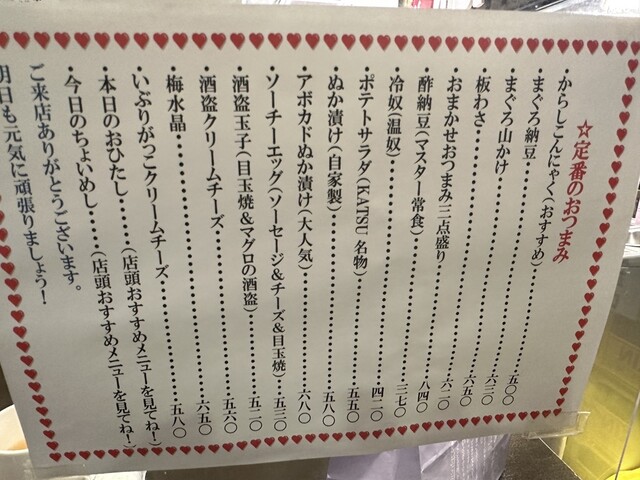 ☆定番のおつまみ
・からしこんにゃく(おすすめ)‥‥‥‥五〇〇
・まぐろ納豆‥‥‥‥六三〇
・まぐろ山かけ‥‥‥‥六五〇
・板わさ‥‥‥‥六二〇
・おまかせおつまみ三点盛り‥‥‥‥八四〇
・酢納豆(マスター常食)‥‥‥‥三七〇
・冷奴(温奴)‥‥‥‥四二〇
・ポテトサラダ(KATSU名物)‥‥‥‥五五〇
・ぬか漬け(自家製)‥‥‥‥五八〇
・アボカドぬか漬け(大人気)‥‥‥‥六八〇
・ソーチーエッグ(ソーセージ＆チーズ＆目玉焼)‥‥五三〇
・酒盗玉子(目玉焼＆マグロの酒盗)‥‥‥‥五二〇
・酒盗クリームチーズ‥‥‥‥五六〇
・梅水晶‥‥‥‥六五〇
・いぶりがっこクリームチーズ‥‥‥‥五八〇
・本日のおひたし‥‥‥(店頭おすすめメニューを見てね！)
・今日のちょいめし‥‥‥(店頭おすすめメニューを見てね！)
ご来店ありがとうございます。
明日も元気に頑張りましょう！